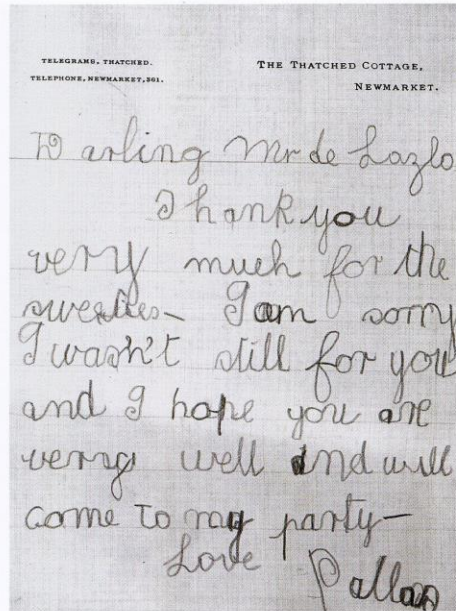 TELEGRAMS, THATCHED.
TELEPHONE, NEWMARKET, 361.
THE THATCHED COTTAGE,
NEWMARKET.
Darling Mr de Lazlo
Thank you
very much for the
sweeties- I am sorry
I wasn't still for you
and I hope you are
very well and will
come to my party-
Love
Pallas